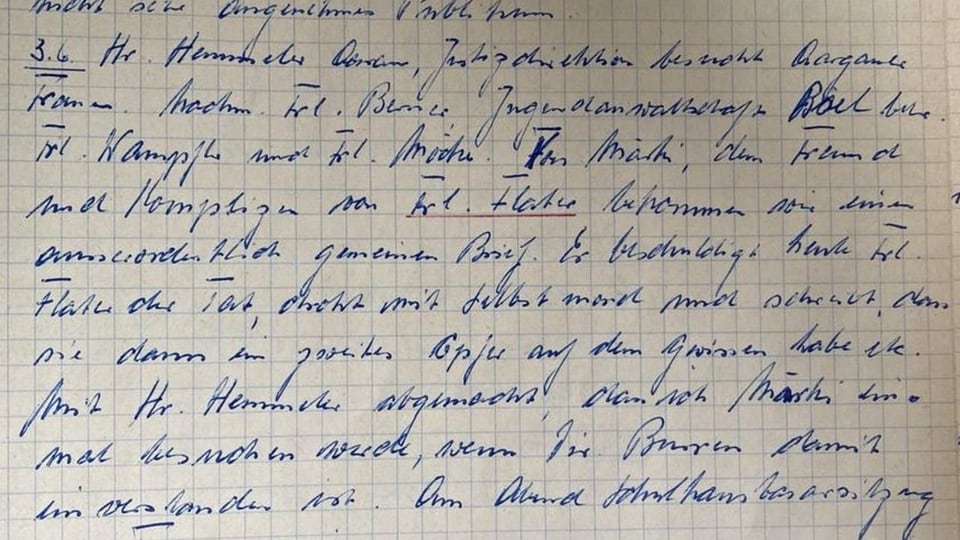 nicht sehr angenehmes Publikum.
3.6. Hr. Hemmeler Aarau, Justizdirektion besucht Aargauer
Frauen. Nachm. Frl. Berner, Jugendanwaltschaft Basel betr.
Frl. Wampfle und Frl. Von Märki, dem Freund
und Komplizen von Frl. Flater bekommen wir einen
ausserordentlich gemeinen Brief. Er beschuldigt heute Frl.
Flater der Tat, droht mit Selbstmord und schreibt, dass
sie dann ein zweites Opfer auf dem Gewissen habe etc.
Mit Hr. Hemmeler abgemacht, dass ich Märki ein-
mal besuchen werde, wenn Dir. Burren damit
einverstanden ist. Am Abend Schulhausbasarsitzung